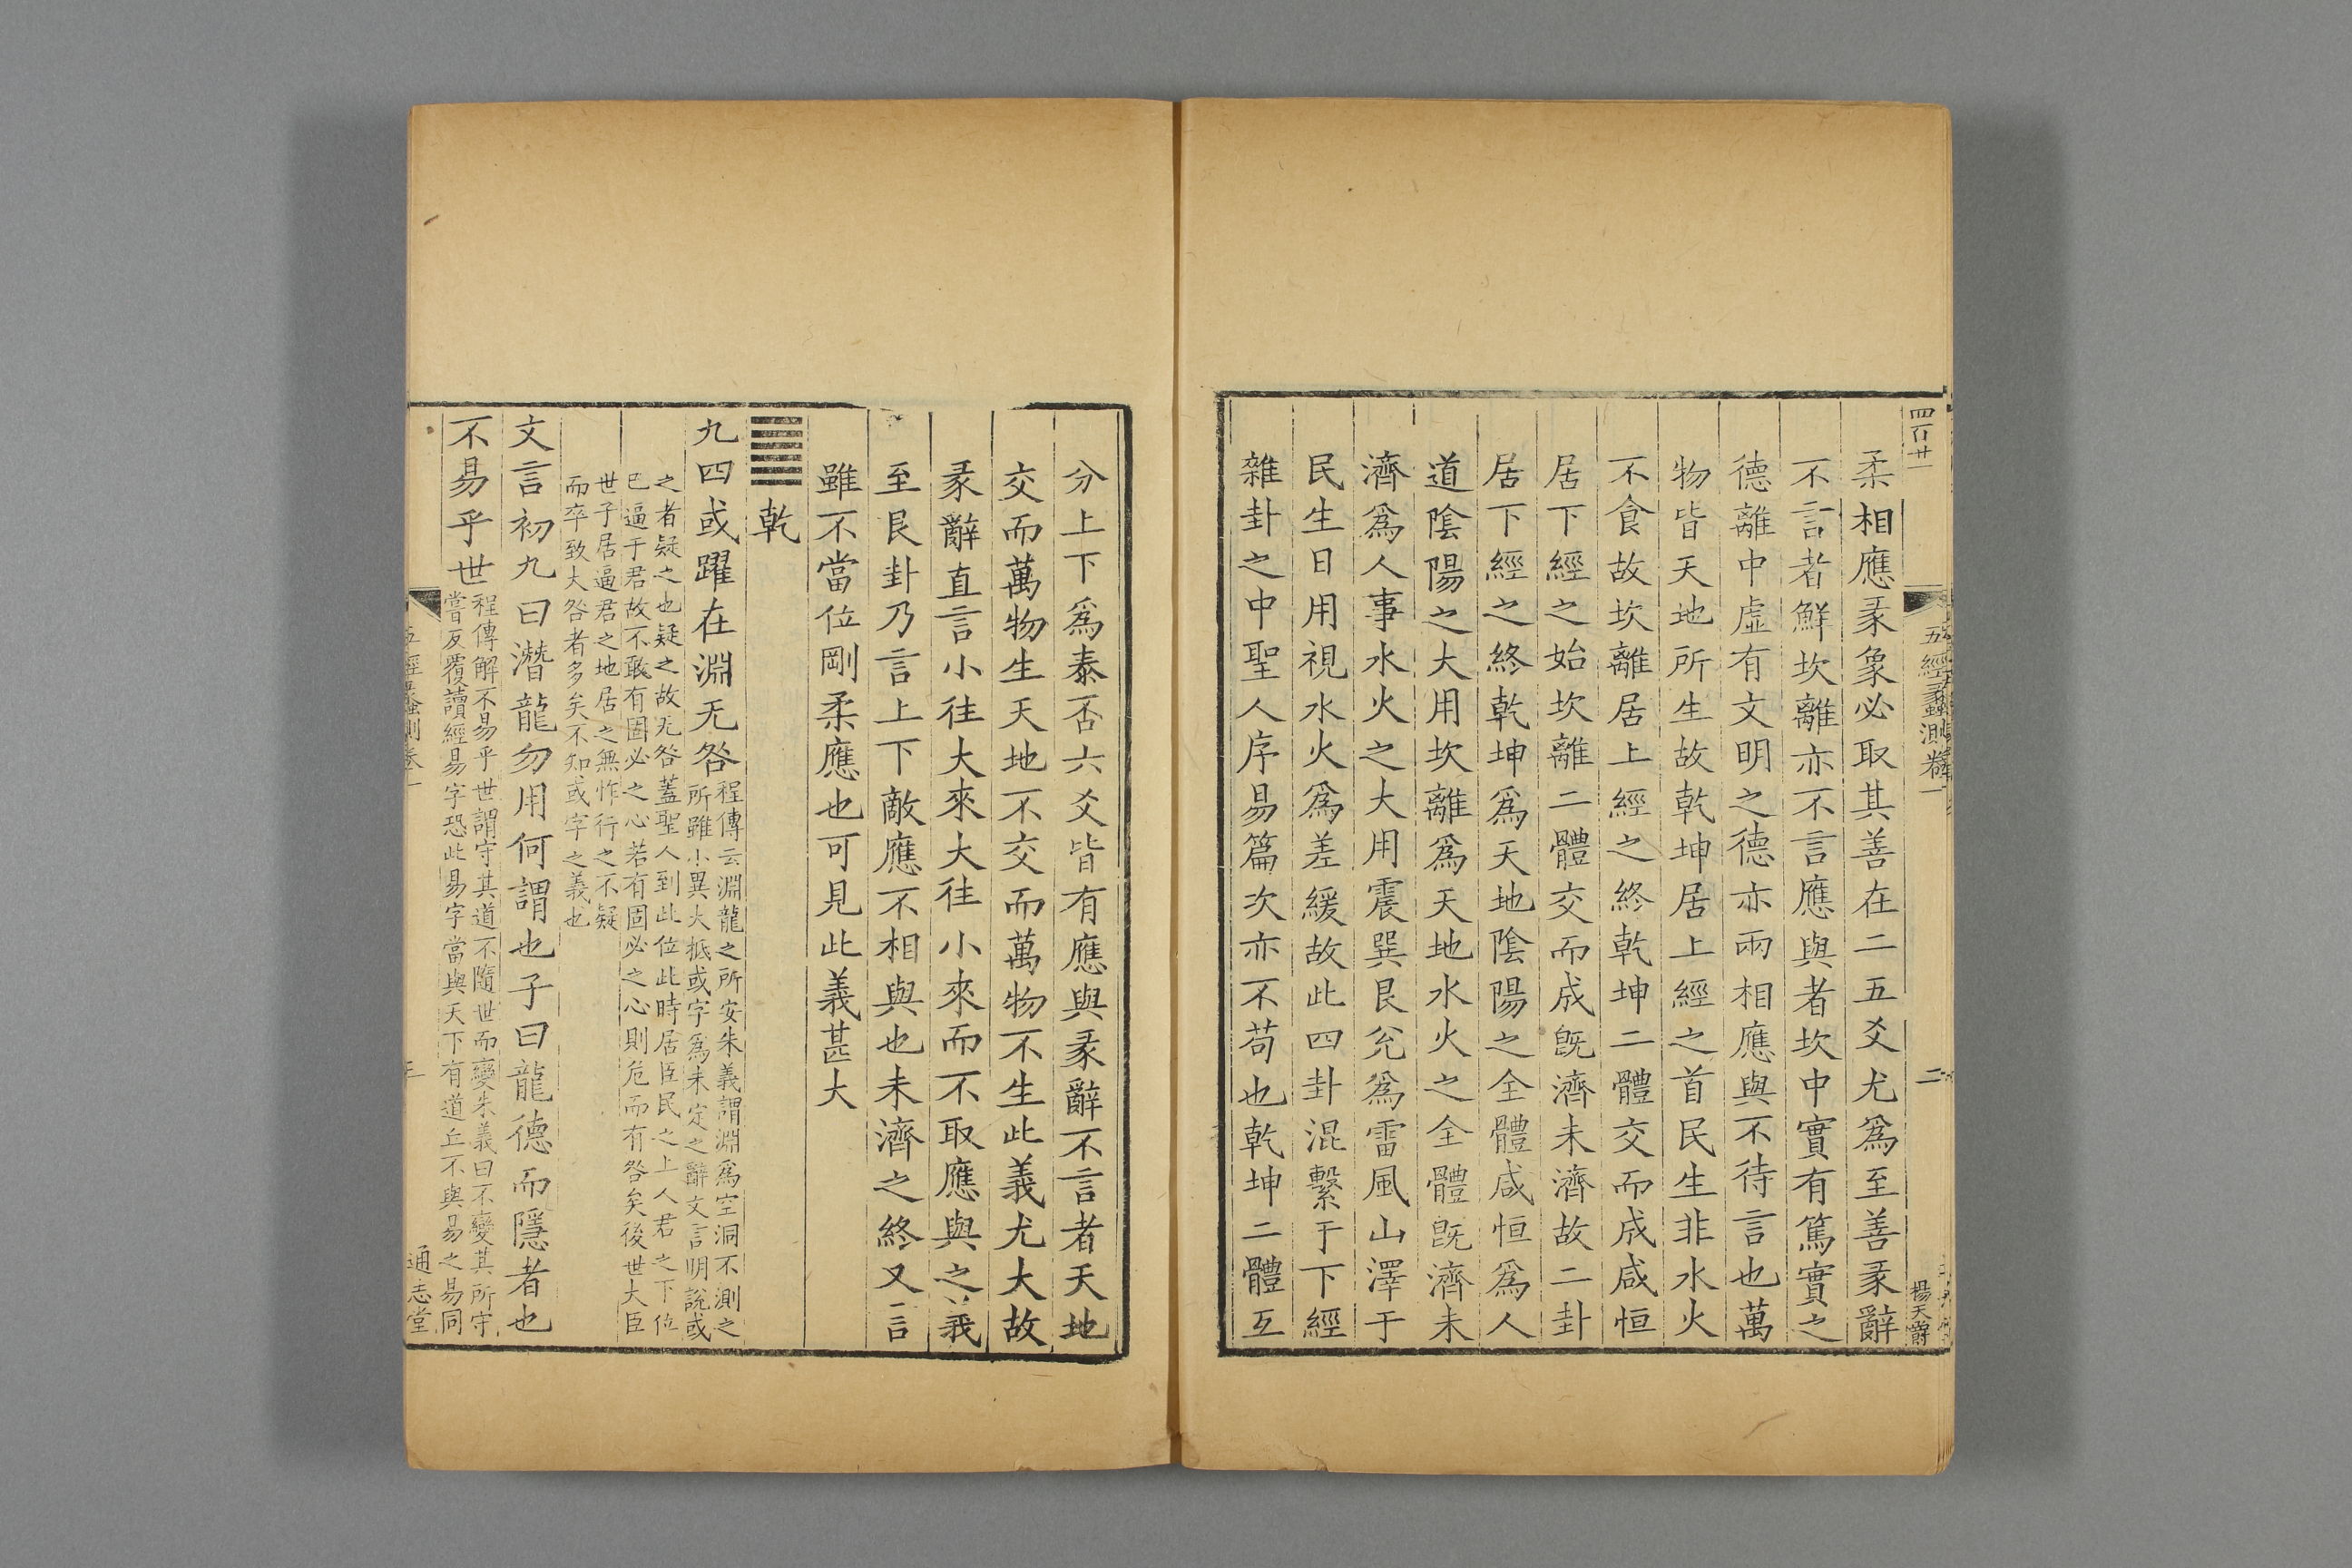 四百廿一
五經蠡測卷一
二
楊天爵
柔相應彖象必取其善在二五爻尤爲至善彖辭
不言者鮮坎離亦不言應與者坎中實有篤實之
德離中虛有文明之德亦兩相應與不待言也萬
物皆天地所生故乾坤居上經之首民生非水火
不食故坎離居上經之終乾坤二體交而成咸恒
居下經之始坎離二體交而成旣濟未濟故二卦
居下經之終乾坤爲天地陰陽之全體咸恒爲人
道陰陽之大用坎離爲天地水火之全體旣濟未
濟爲人事水火之大用震巽艮兊爲雷風山澤于
民生日用視水火爲差緩故此四卦混繫于下經
雜卦之中聖人序易篇次亦不苟也乾坤二體互
分上下爲泰否六爻皆有應與彖辭不言者天地
交而萬物生天地不交而萬物不生此義尤大故
彖辭直言小往大來大往小來而不取應與之義
至艮卦乃言上下敵應不相與也未濟之終又言
雖不當位剛柔應也可見此義甚大
䷀乾
九四或躍在淵无咎
程傳云淵龍之所安朱義謂淵爲空洞不測之
所雖小異大抵或字爲未定之辭文言明說或
之者疑之也疑之故无咎蓋聖人到此位此時居臣民之上人君之下位
已逼于君故不敢有固必之心若有固必之心則危而有咎矣後世大臣
世子居逼君之地居之無怍行之不疑
而卒致大咎者多矣不知或字之義也
文言初九曰潛龍勿用何謂也子曰龍德而隱者也
不易乎世
程傳解不易乎世謂守其道不隨世而變朱義曰不變其所守
嘗反覆讀經易字恐此易字當與天下有道丘不與易之易同
五經蠡測卷一
三
通志堂